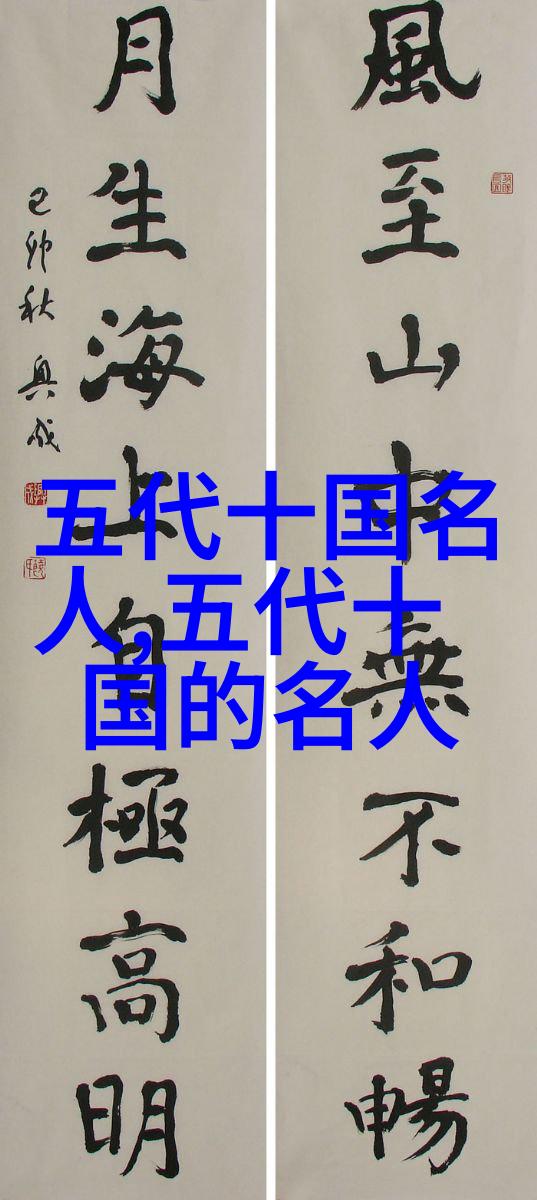 風至山中無不和暢
月生海上自極高明
己卯秋
五代十国名
人,五代十
国的名人